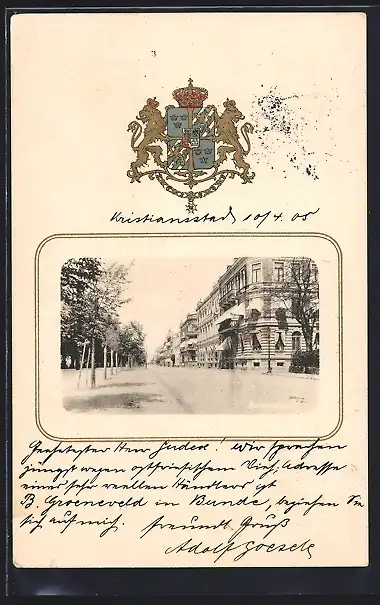 Kristiansstad 10/4. 05
Geehrtester Herr Judex! Wir sprachen
jüngst wegen ostfriesischem Vieh; Adresse
eines sehr reellen Händlers ist
B. Groeneveld in Bunde, beziehen Sie
sich auf mich. freundl. Gruß
Adolf